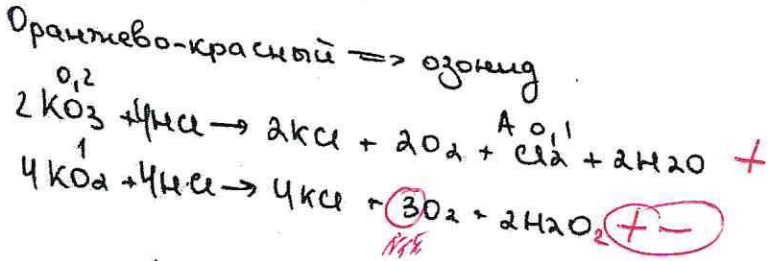 Оранжево-красный => озонид
0,2 A 0,1
2KO3 + 4HCl → 2KCl + 2O2 + Cl2 + 2H2O +
1
4KO2 + 4HCl → 4KCl + 3O2 + 2H2O2 + -